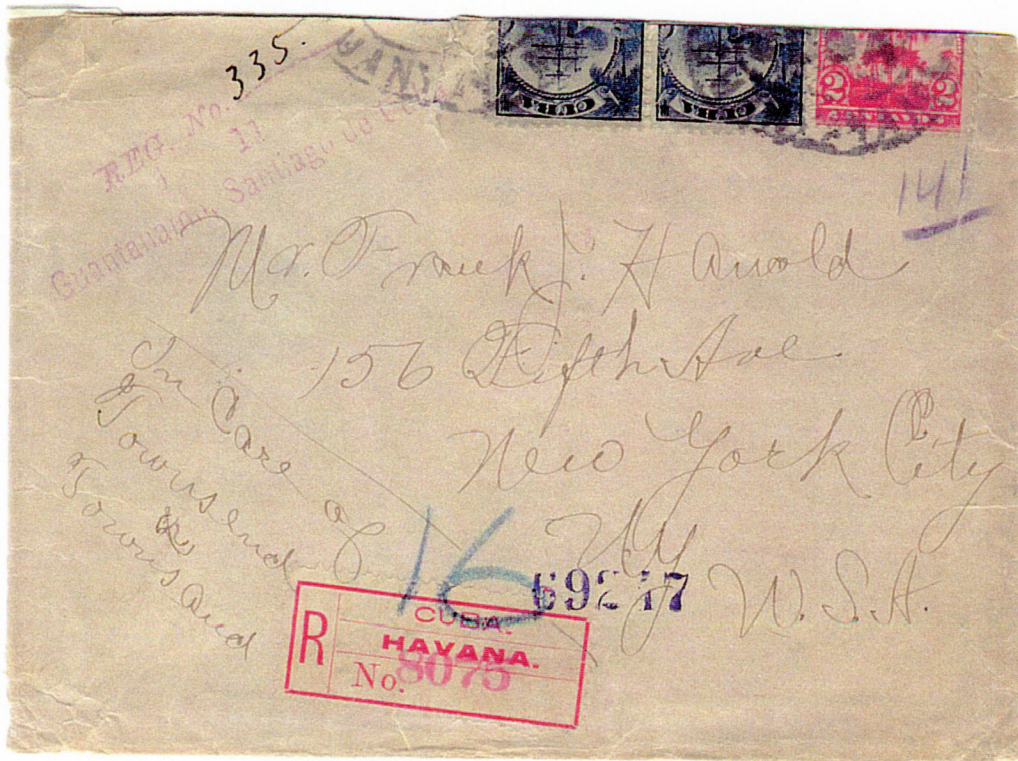 335.
REG. No.
11
Guantanamo, Santiago de
CUBA
CUBA
2 2
141
Mr. Frank J. Harold
156 Fifth Ave
New York City
N.Y.
U.S.A.
In Care of
Townsend
&
Townsand
16
69217
CUBA.
R HAVANA.
No. 8075